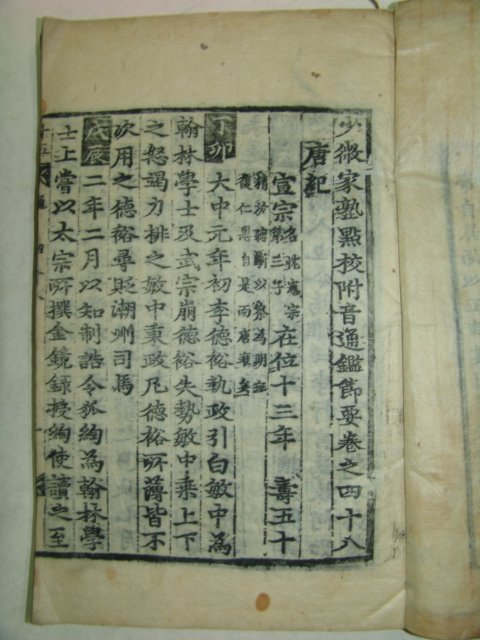 少微家塾點校附音通鑑節要卷之四十八
唐紀
宣宗 名忱憲宗第三子 在位十三年 壽五十
精於聽斷以察爲明無復仁恩自是而唐衰矣
丁卯 大中元年初李德裕執政引白敏中為
翰林學士及武宗崩德裕失勢敏中乘上下
之怒竭力排之敏中秉政凡德裕所薄皆不
次用之德裕尋貶潮州司馬
戊辰 二年二月以知制誥令狐綯為翰林學
士上嘗以太宗所撰金鏡錄授綯使讀之至